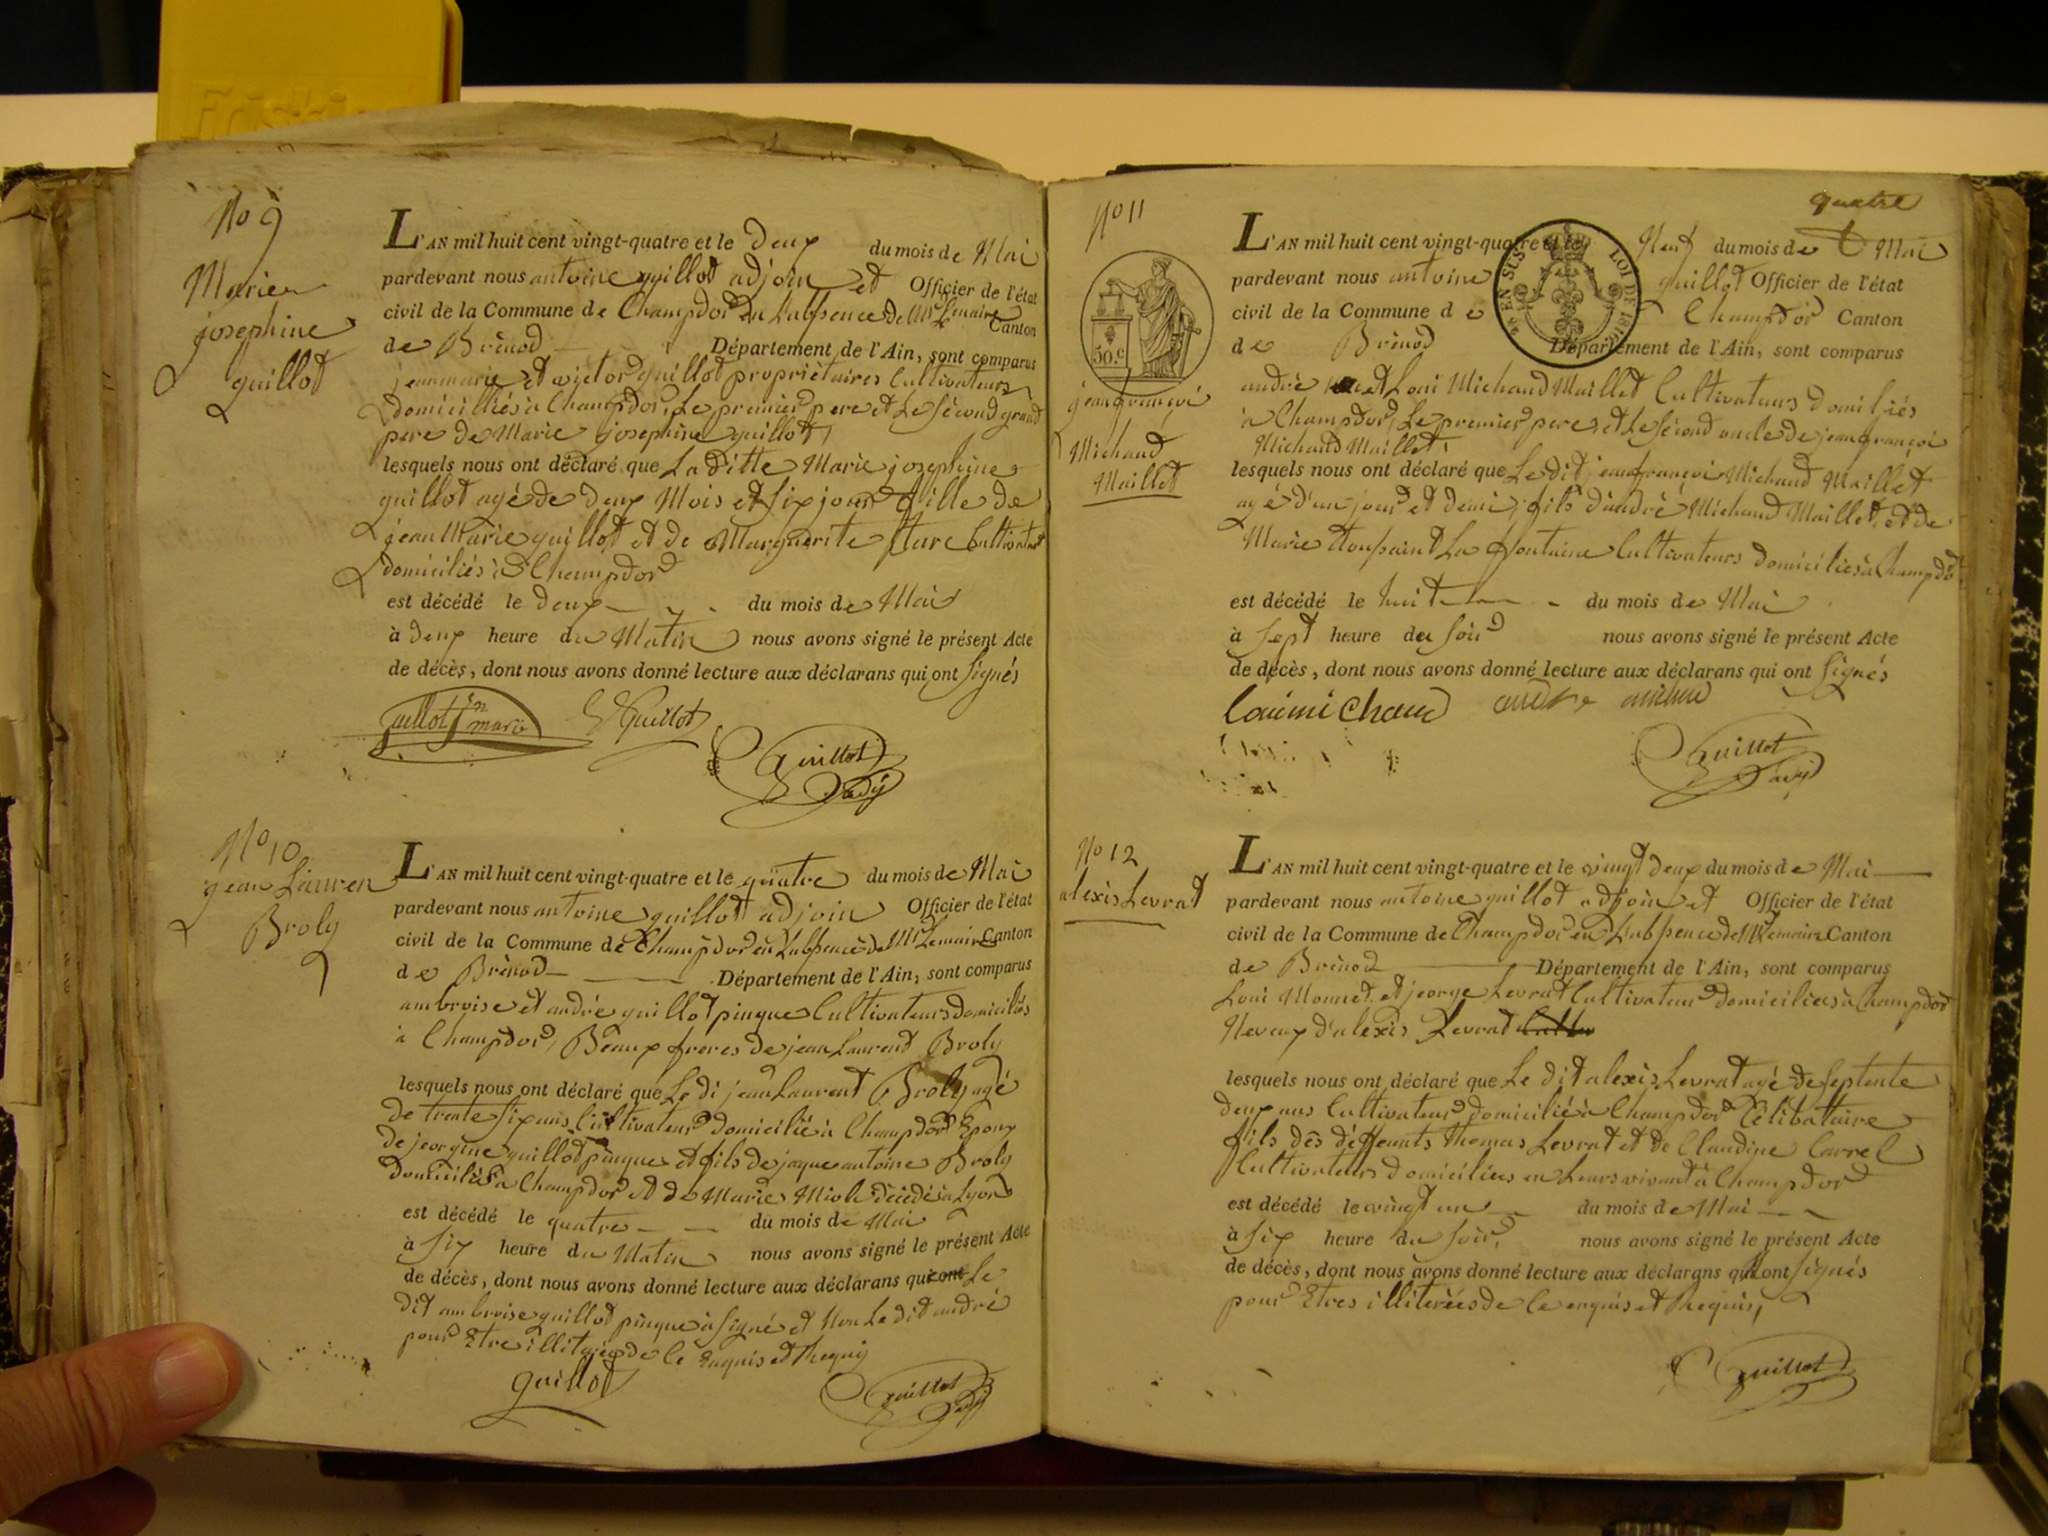 No 9
Marie
josephine
guillot
L'AN mil huit cent vingt-quatre et le deux du mois de Mai
pardevant nous antoine guillot adjoin et Officier de l'état
civil de la Commune de Champdor en L'absence de Mr Lemaire Canton
de Brénod Département de l'Ain, sont comparus
jean marie et victor guillot propriétaires Cultivateurs
domiciliés à Champdor, Le premier pere et Le second grand
pere de Marie josephine guillot,
lesquels nous ont déclaré que La ditte Marie josephine
guillot agé de deux Mois et six jour fille de
jean Marie guillot et de Marguerite Cultivateur
domiciliés à Champdor
est décédé le deux du mois de Mai
à deux heure du Matin nous avons signé le présent Acte
de décès, dont nous avons donné lecture aux déclarans qui ont signés
guillot jn marie Guillot
Guillot
adj
No 10
jean Lauren
Broly
L'AN mil huit cent vingt-quatre et le quatre du mois de Mai
pardevant nous antoine guillot adjoin Officier de l'état
civil de la Commune de Champdor en L'absence de Mr Lemaire Canton
de Brénod Département de l'Ain, sont comparus
ambroise et andré guillot pinque Cultivateurs domiciliés
à Champdor, Beaux freres de jean Laurent Broly
lesquels nous ont déclaré que Le di jean Laurent Broly agé
de trente six ans Cultivateur domicilié à Champdor Epoux
de jeorgine guillot pinque et fils de jaque antoine Broly
domiciliés à Champdor et de Marie décédé à Lyon
est décédé le quatre du mois de Mai
à six heure du Matin nous avons signé le présent Acte
de décès, dont nous avons donné lecture aux déclarans qui ont Le
dit ambroise guillot pinque à signé et Non Le dit andré
pour Etre de ce Enquis et Requis
guillot Guillot
adj
quatre
No 11
50.c
jean françoi
Michaud
Maillet
EN SUS LOI DE
L'AN mil huit cent vingt-quatre et le Neuf du mois de Mai
pardevant nous antoine guillot Officier de l'état
civil de la Commune de Champdor Canton
de Brénod Département de l'Ain, sont comparus
andré et Loui Michaud Maillet Cultivateurs domiliés
à Champdor, Le premier pere, et Le second oncle de jean françoi
Michaud Maillet,
lesquels nous ont déclaré que Le dit jean françoi Michaud Maillet
agé d'un jour et demi, fils d'andré Michaud Maillet, et de
Marie toussaint La fontaine Cultivateurs domiciliés à Champdor
est décédé le huit du mois de Mai
à sept heure du soir nous avons signé le présent Acte
de décès, dont nous avons donné lecture aux déclarans qui ont signés
Loui michaud andre
Guillot
adj
No 12
alexis Levrat
L'AN mil huit cent vingt-quatre et le vingt deux du mois de Mai
pardevant nous antoine guillot adjoin et Officier de l'état
civil de la Commune de Champdor en L'absence de Mr Lemaire Canton
de Brénod Département de l'Ain, sont comparus
Loui Monnet et jeorge Levrat Cultivateur domiciliés à Champdor
Neveux d'alexis Levrat
lesquels nous ont déclaré que Le dit alexis Levrat agé de Septente
deux ans Cultivateur domicilié à Champdor Célibattaire
fils dès déffeunts thomas Levrat et de Claudine Carrel
Cultivateurs domiciliés en Leurs vivant à Champdor
est décédé le vingt un du mois de Mai
à six heure du soir, nous avons signé le présent Acte
de décès, dont nous avons donné lecture aux déclarans qui ont signés
pour Etres illiterées de Ce enquis et Requis,
Guillot